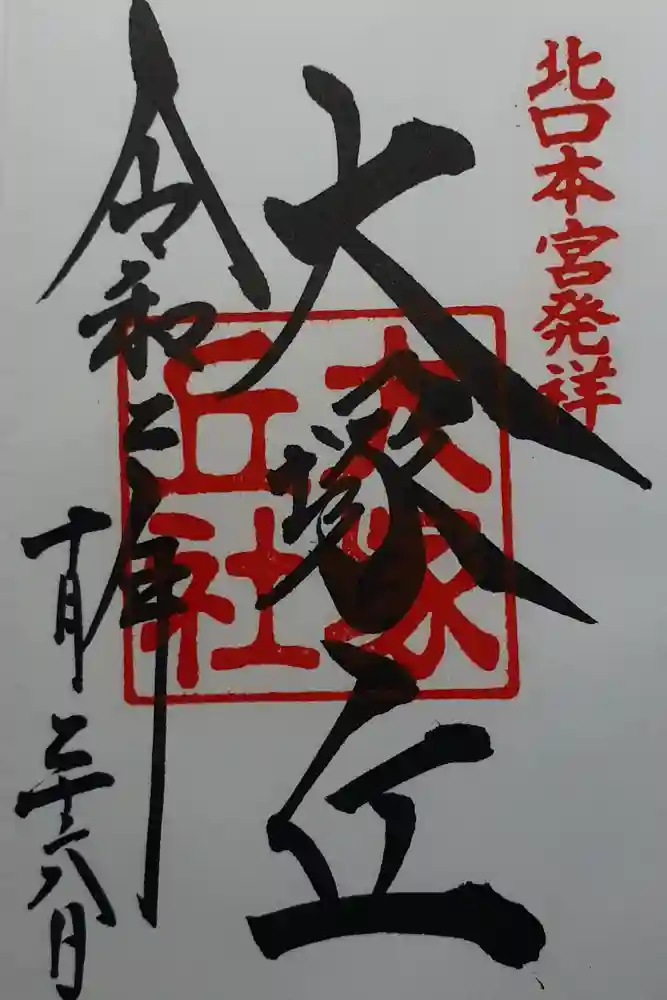 北口本宮発祥
大塚丘
大塚
丘社
令和二年
十月二十六日